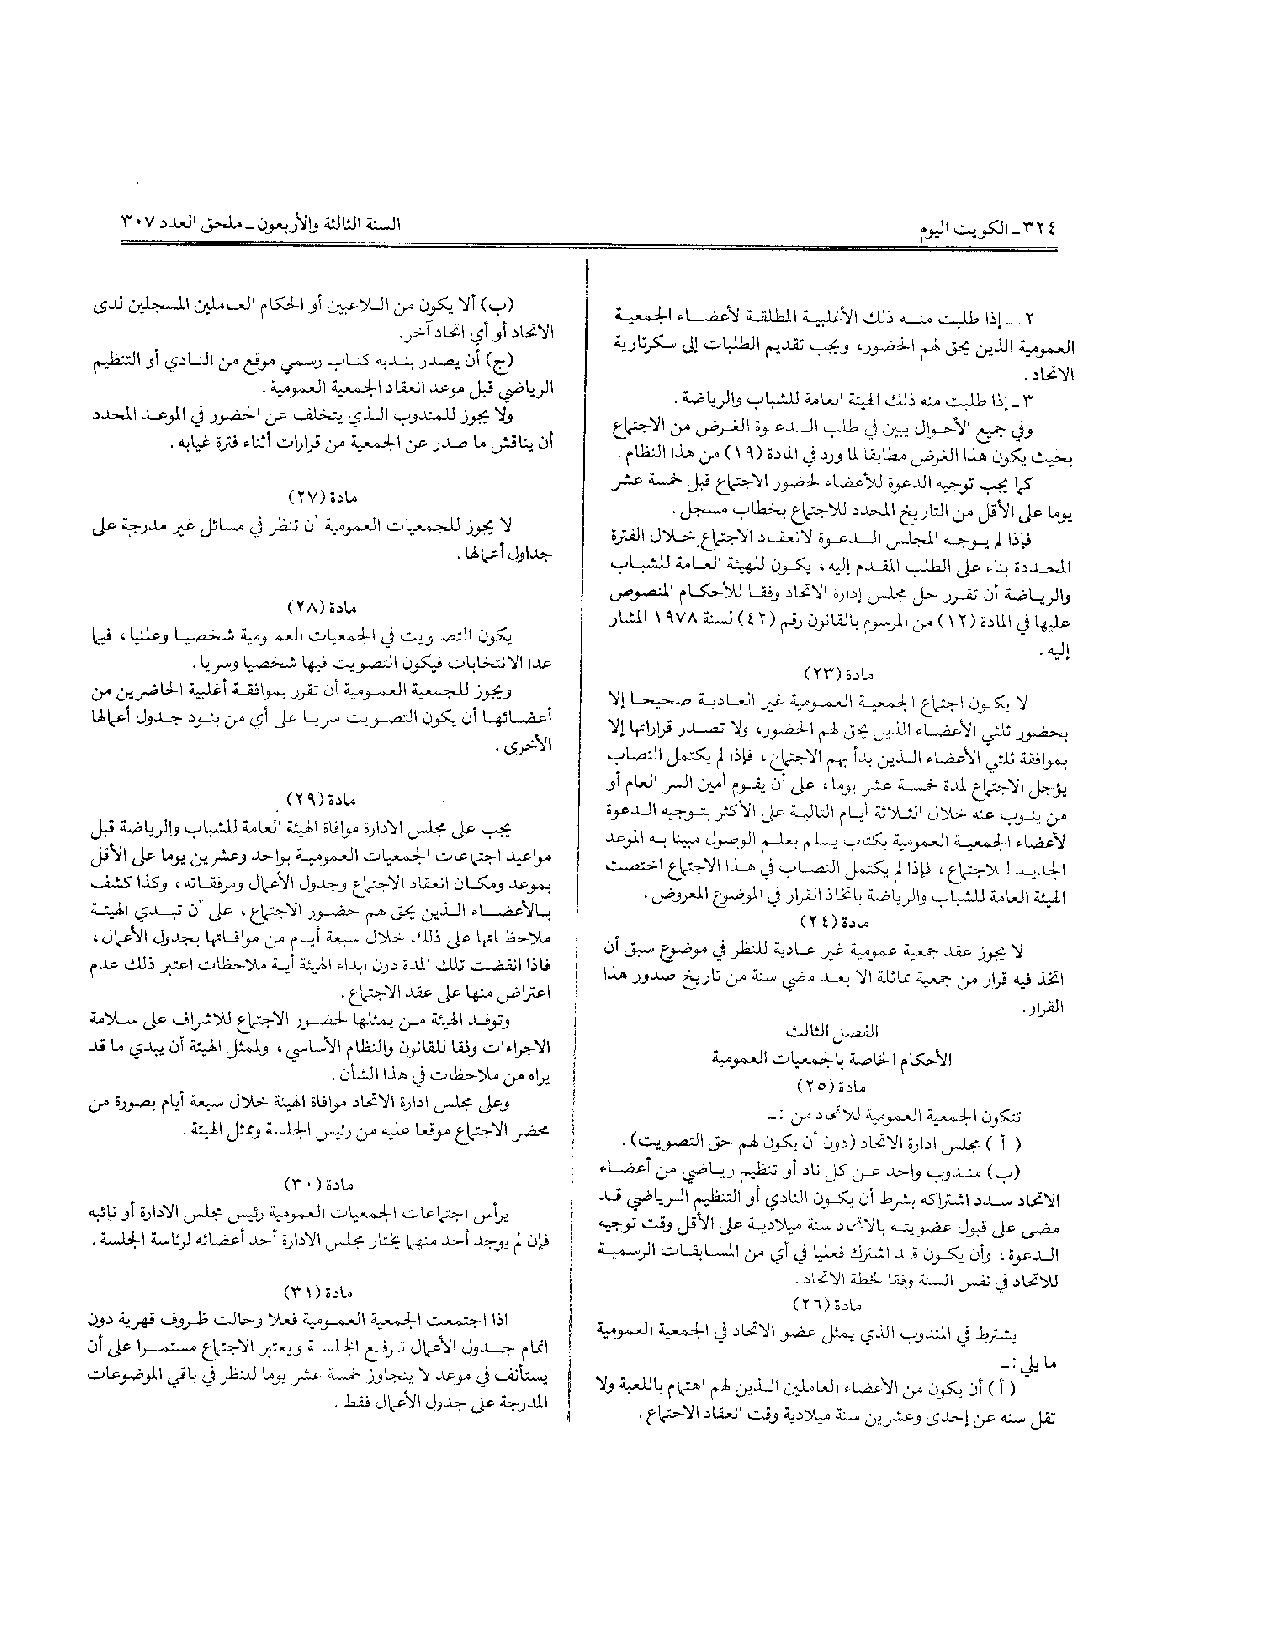 ٣٢٤ – الكويت اليوم
السنة الثالثة والأربعون – ملحق العدد ٣٠٧
٢ – إذا طلبت منه ذلك الأغلبية المطلقة لأعضاء الجمعية
العمومية الذين يحق لهم الحضور، ويجب تقديم الطلبات إلى سكرتارية
الاتحاد.
٣ – إذا طلبت منه ذلك الهيئة العامة للشباب والرياضة.
وفي جميع الأحوال يبين في طلب الدعوة الغرض من الاجتماع
بحيث يكون هذا الغرض مطابقا لما ورد في المادة (١٩) من هذا النظام.
كما يجب توجيه الدعوة للأعضاء لحضور الاجتماع قبل خمسة عشر
يوما على الأقل من التاريخ المحدد للاجتماع بخطاب مسجل.
فإذا لم يوجه المجلس الدعوة لانعقاد الاجتماع خلال الفترة
المحددة بناء على الطلب المقدم إليه، يكون للهيئة العامة للشباب
والرياضة أن تقرر حل مجلس إدارة الاتحاد وفقا للأحكام المنصوص
عليها في المادة (١٢) من المرسوم بالقانون رقم (٤٢) لسنة ١٩٧٨ المشار
إليه.
مادة (٢٣)
لا يكون اجتماع الجمعية العمومية غير العادية صحيحا إلا
بحضور ثلثي الأعضاء الذين يحق لهم الحضور، ولا تصدر قراراتها إلا
بموافقة ثلثي الأعضاء الذين بدأ بهم الاجتماع، فإذا لم يكتمل النصاب
يؤجل الاجتماع لمدة خمسة عشر يوما، على أن يقوم أمين السر العام أو
من ينوب عنه خلال الثلاثة أيام التالية على الأكثر بتوجيه الدعوة
لأعضاء الجمعية العمومية بكتاب يسلم بعلم الوصول مبينا به الموعد
الجديد للاجتماع، فإذا لم يكتمل النصاب في هذا الاجتماع اختصت
الهيئة العامة للشباب والرياضة باتخاذ القرار في الموضوع المعروض.
مادة (٢٤)
لا يجوز عقد جمعية عمومية غير عادية للنظر في موضوع سبق أن
اتخذ فيه قرار من جمعية مماثلة الا بعد مضي سنة من تاريخ صدور هذا
القرار.
الفصل الثالث
الأحكام الخاصة بالجمعيات العمومية
مادة (٢٥)
تتكون الجمعية العمومية للاتحاد من :–
( أ ) مجلس ادارة الاتحاد (دون أن يكون لهم حق التصويت).
(ب) مندوب واحد عن كل ناد أو تنظيم رياضي من أعضاء
الاتحاد سدد اشتراكه بشرط أن يكون النادي أو التنظيم الرياضي قد
مضى على قبول عضويته بالاتحاد سنة ميلادية على الأقل وقت توجيه
الدعوة، وأن يكون قد اشترك فعليا في أي من المسابقات الرسمية
للاتحاد في نفس السنة وفقا لخطة الاتحاد.
مادة (٢٦)
يشترط في المندوب الذي يمثل عضو الاتحاد في الجمعية العمومية
ما يلي :–
( أ ) أن يكون من الأعضاء العاملين الذين لهم اهتمام باللعبة ولا
تقل سنه عن إحدى وعشرين سنة ميلادية وقت انعقاد الاجتماع.
(ب) ألا يكون من اللاعبين أو الحكام العاملين المسجلين لدى
الاتحاد أو أي اتحاد آخر.
(ج) أن يصدر بندبه كتاب رسمي موقع من النادي أو التنظيم
الرياضي قبل موعد انعقاد الجمعية العمومية.
ولا يجوز للمندوب الذي يتخلف عن الحضور في الموعد المحدد
أن يناقش ما صدر عن الجمعية من قرارات أثناء فترة غيابه.
مادة (٢٧)
لا يجوز للجمعيات العمومية أن تنظر في مسائل غير مدرجة على
جداول أعمالها.
مادة (٢٨)
يكون التصويت في الجمعيات العمومية شخصيا وعلنيا، فيما
عدا الانتخابات فيكون التصويت فيها شخصيا وسريا.
ويجوز للجمعية العمومية أن تقرر بموافقة أغلبية الحاضرين من
أعضائها أن يكون التصويت سريا على أي من بنود جدول أعمالها
الأخرى.
مادة (٢٩)
يجب على مجلس الادارة موافاة الهيئة العامة للشباب والرياضة قبل
مواعيد اجتماعات الجمعيات العمومية بواحد وعشرين يوما على الأقل
بموعد ومكان انعقاد الاجتماع وجدول الأعمال ومرفقاته، وكذا كشف
بالأعضاء الذين يحق لهم حضور الاجتماع، على أن تبدي الهيئة
ملاحظاتها على ذلك خلال سبعة أيام من موافاتها بجدول الأعمال،
فاذا انقضت تلك المدة دون ابداء الهيئة أية ملاحظات اعتبر ذلك عدم
اعتراض منها على عقد الاجتماع.
وتوفد الهيئة من يمثلها لحضور الاجتماع للاشراف على سلامة
الاجراءات وفقا للقانون والنظام الأساسي، ولممثل الهيئة أن يبدي ما قد
يراه من ملاحظات في هذا الشأن.
وعلى مجلس ادارة الاتحاد موافاة الهيئة خلال سبعة أيام بصورة من
محضر الاجتماع موقعا عليه من رئيس الجلسة وممثل الهيئة.
مادة (٣٠)
يرأس اجتماعات الجمعيات العمومية رئيس مجلس الادارة أو نائبه
فإن لم يوجد أحد منهما يختار مجلس الادارة أحد أعضائه لرئاسة الجلسة.
مادة (٣١)
اذا اجتمعت الجمعية العمومية فعلا وحالت ظروف قهرية دون
اتمام جدول الأعمال ترفع الجلسة ويعتبر الاجتماع مستمرا على أن
يستأنف في موعد لا يتجاوز خمسة عشر يوما للنظر في باقي الموضوعات
المدرجة على جدول الأعمال فقط.